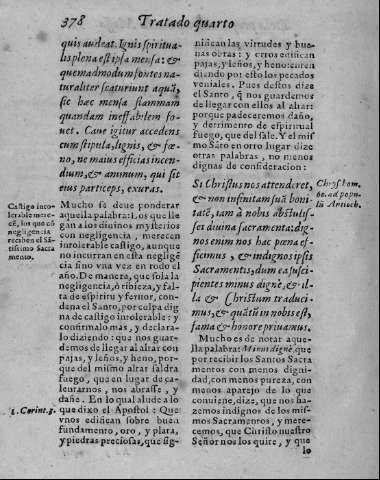 378
Tratado quarto
quis audeat. Ignis spiritua-
lis plena est ipsa mensa: &
quemadmodum fontes na-
turaliter scaturiunt aquã,
sic hæc mensa flammam
quandam ineffabilem fo-
uet. Caue igitur accedens
cum stipula, lignis, & fœ-
no, ne maius efficias incen-
dium, & animum, qui sit
eius particeps, exuras.
Castigo into-
lerable mere-
cẽ, los que cõ
negligencia
reciben el Sã-
tissimo Sacra
mento.
Mucho se deue ponderar
aquella palabra: Los que lle
gan a los diuinos mysterios
con negligencia, merecen
intolerable castigo, aunque
no incurran en esta negligẽ
cia sino vna vez en todo el
año. De manera, que sola la
negligencia, ò tibieza, y fal-
ta de espiritu y feruor, con-
dena el Santo, por culpa dig
na de castigo intolerable: y
confirmalo mas, y declara-
lo diziendo: que nos guar-
demos de llegar al altar con
pajas, y leños, y heno, por-
que del mismo altar saldra
fuego, que en lugar de ca-
lentarnos, nos abrasse, y
dañe. En lo qual alude a lo
1. Corint. 3.
que dixo el Apostol: Que
vnos edifican sobre buen
fundamento, oro, y plata,
y piedras preciosas, que sig-
nifican las virtudes y bue-
nas obras: y otros edifican
pajas, y leños, y heno: enten
diendo por esto los pecados
veniales. Pues destos dize
el Santo, q̃ nos guardemos
de llegar con ellos al altar:
porque padeceremos daño,
y detrimento de espiritual
fuego, que del sale. Y el mis
mo Sãto en otro lugar dize
otras palabras, no menos
dignas de consideracion:
Si Christus nos attenderet,
& non infinitam suã boni-
tatẽ, tam à nobis abstulis-
set diuina sacramenta: dig-
nos enim nos hac pœna ef-
ficimus, & indignos ipsis
Sacramentis, dum ea susci-
pientes minus dignè, & il-
la & Christum traduci-
mus, & quãtũ in nobis est,
fama & honore priuamus.
Chrysostom.
ad popu-
lũ Antioch.
Mucho es de notar aque-
lla palabra: Minus dignè, que
por recibir los Santos Sacra
mentos con menos digni-
dad, con menos pureza, con
menos aparejo de lo que
conuiene, dize, que nos ha-
zemos indignos de los mis-
mos Sacramentos, y mere-
cemos, que Christo nuestro
Señor nos los quite, y que
lo